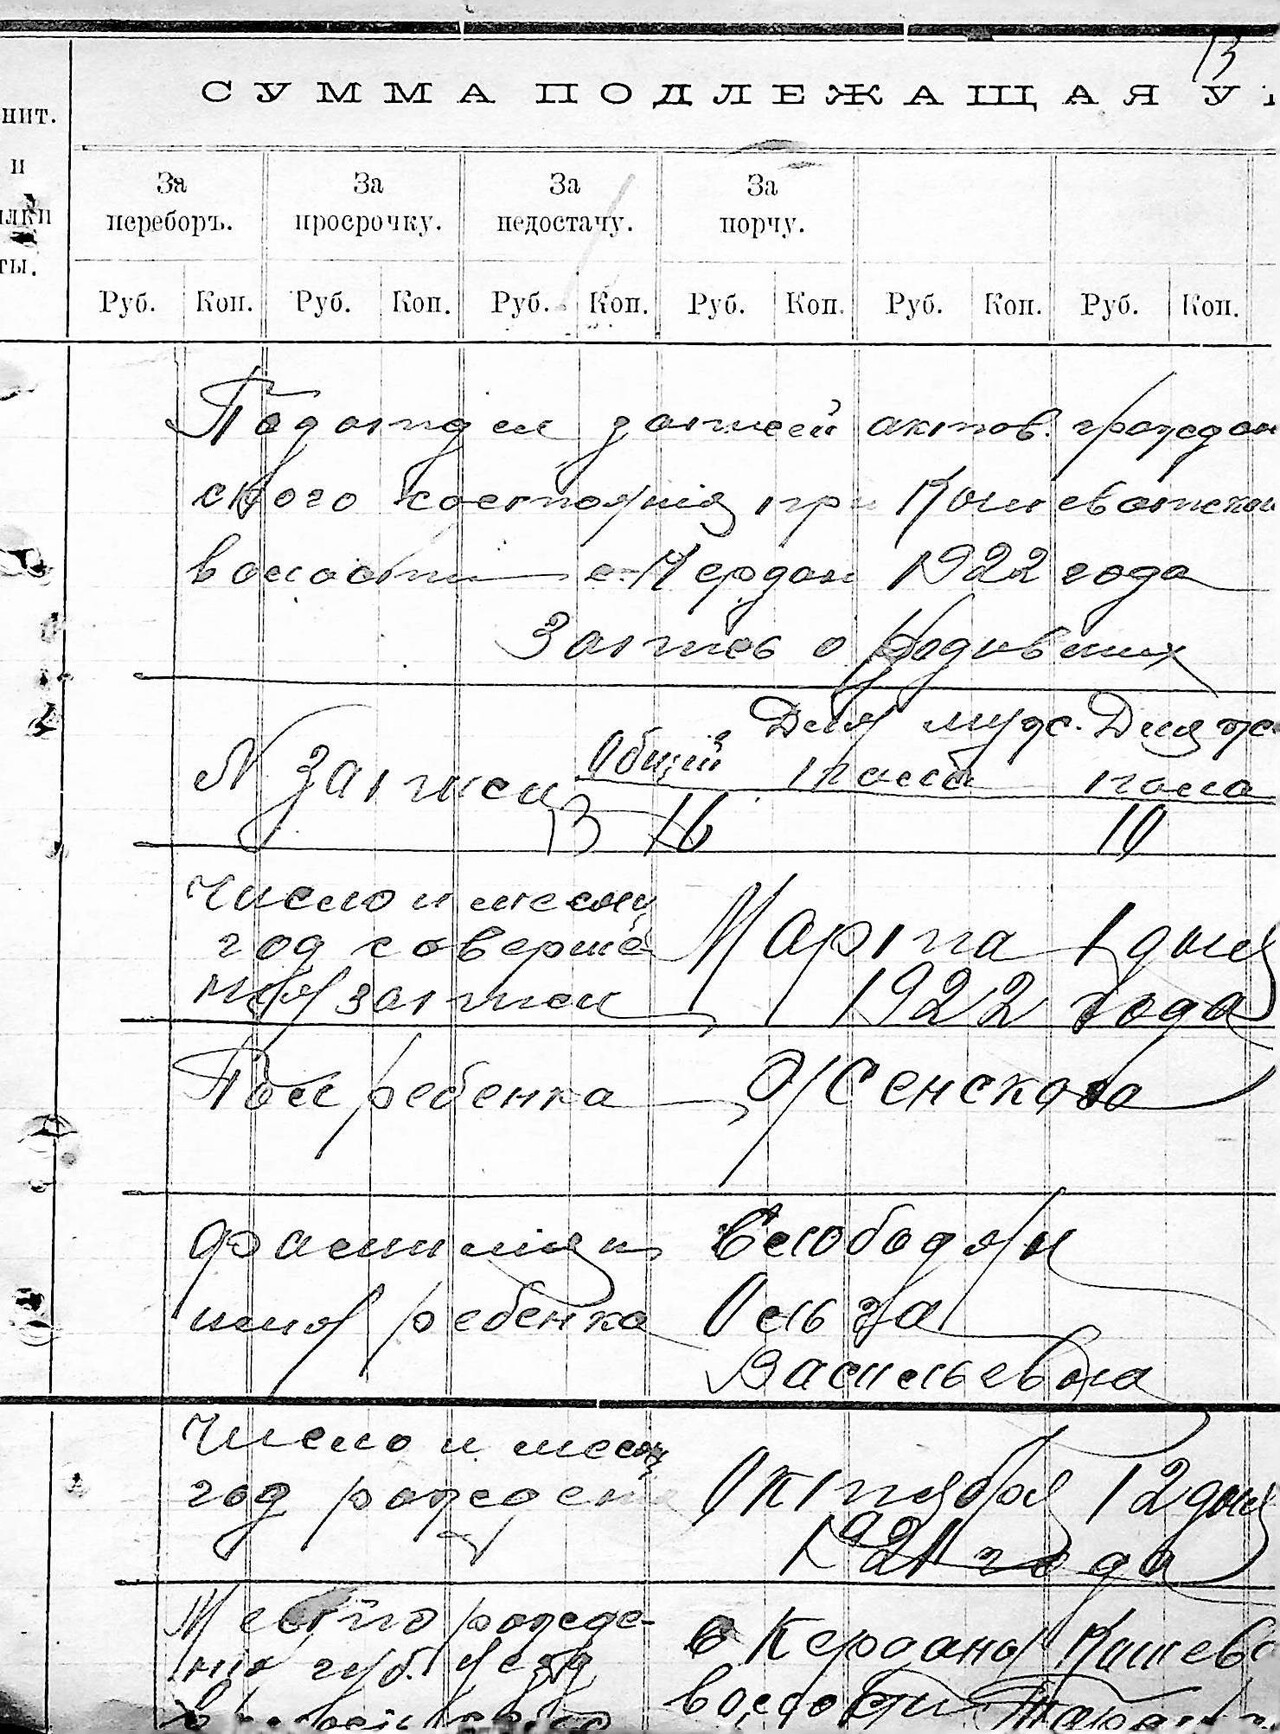 13
СУММА ПОДЛЕЖАЩАЯ У
нит.
и
ылки
ты.
За переборъ.
За просрочку.
За недостачу.
За порчу.
Руб. Коп. Руб. Коп. Руб. Коп. Руб. Коп. Руб. Коп. Руб. Коп.
Подотдел записей актов граждан
ского состояния при Кошеватской
волости с. Кердан 1922 года
Запись о родивших
N записи Общий Для муж. пола Для же пола
13 16 10
Число и месяц
год соверше
ния записи
Марта 1 дня
1922 года
Пол ребенка Женского
Фамилия и
имя ребенка
Слободян
Ольга
Васильевна
Число и месяц
год рождения
Октября 12 дня
1921 года
Место рожде-
ния губ. уезд
с Керданы Кашева
волости